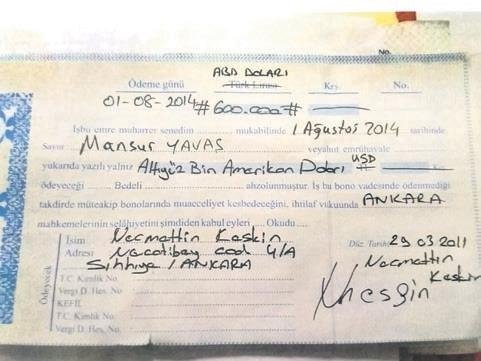 No.
ABD DOLARI
Ödeme günü Türk Lirası Krş. No.
01-08-2014 #600.000#
İşbu emre muharrer senedim mukabilinde 1 Ağustos 2014 tarihinde
Sayın Mansur YAVAŞ veyahut emrühavale
yukarıda yazılı yalnız Altıyüz Bin Amerikan Doları USD
ödeyeceğim Bedeli ahzolunmuştur. İş bu bono vadesinde ödenmediği
takdirde müteakip bonolarında muacceliyet kesbedeceğini, ihtilaf vukuunda ANKARA
mahkemelerinin selâhiyetini şimdiden kabul eyleri Okudu
İsim Necmettin Keskin Düz. Tarihi 29 03 2011
Adresi Necatibey cad 4/A Necmettin
Sıhhıye / ANKARA Keskin
T.C. Kimlik No.
Vergi D. Hes. No
KEFİL
T.C. Kimlik No.
Vergi D. Hes. No.
Ödeyecek